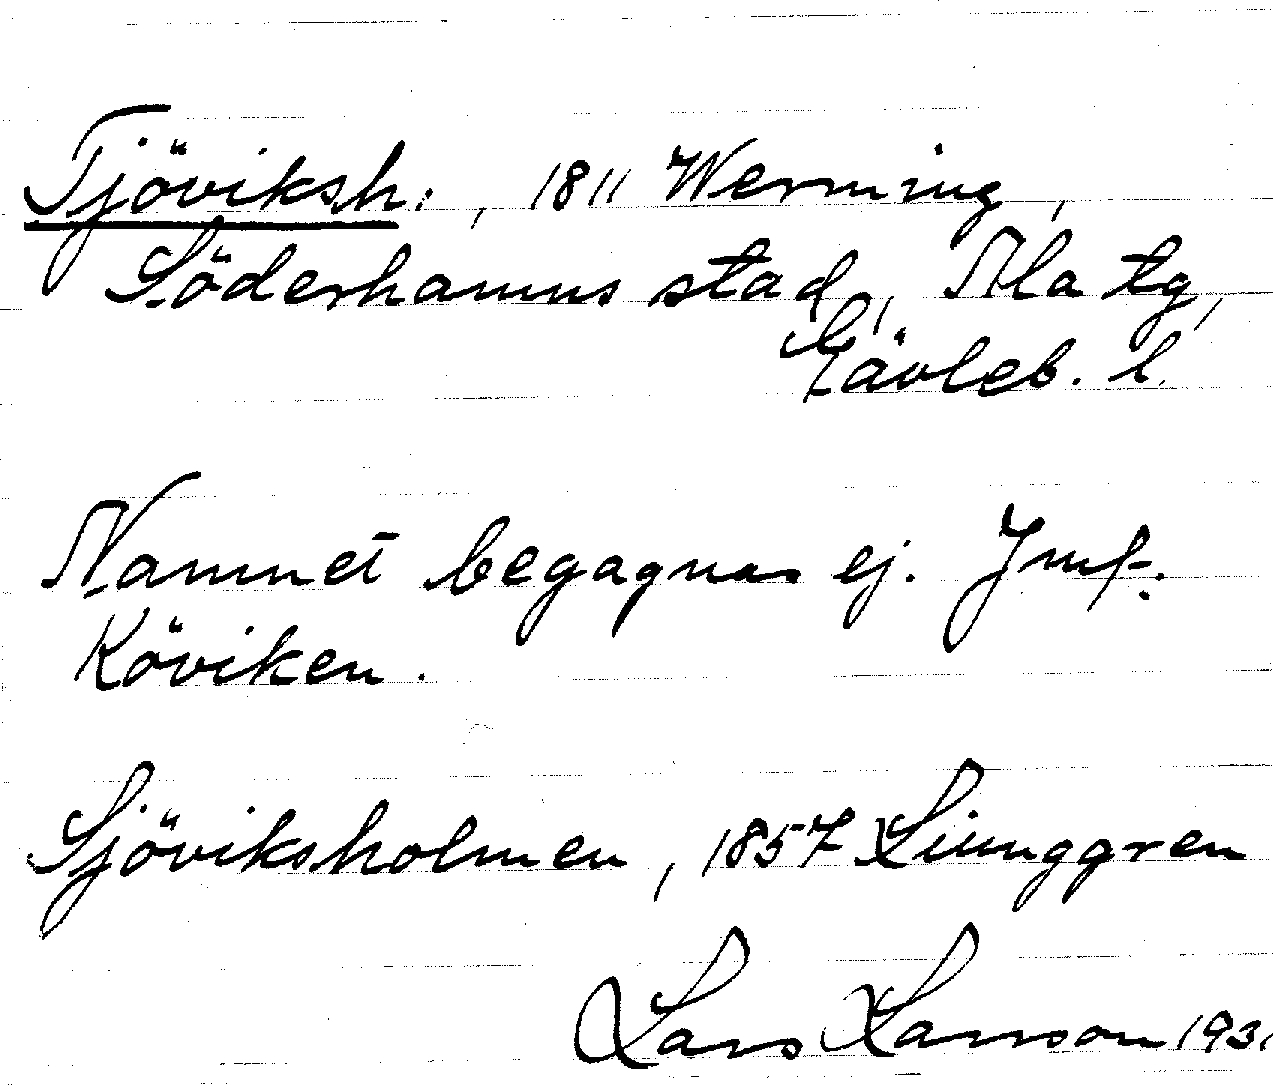 Tjöviksh., 1811 Werming,
Söderhamns stad, Ala tg,
Gävleb. l.
Namnet begagnas ej. Jmf.
Köviken.
Sjöviksholmen, 1857 Liunggren
Lars Larsson 1931